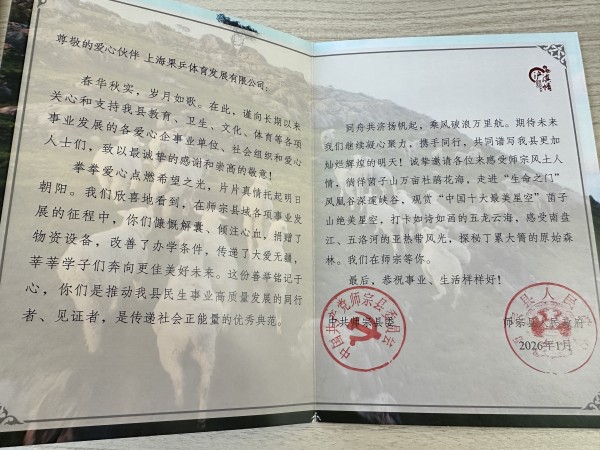 尊敬的爱心伙伴 上海果乒体育发展有限公司：
春华秋实，岁月如歌。在此，谨向长期以来
关心和支持我县教育、卫生、文化、体育等各项
事业发展的各爱心企事业单位、社会组织和爱心
人士们，致以最诚挚的感谢和崇高的敬意！
拳拳爱心点燃希望之光，片片真情托起明日
朝阳。我们欣喜地看到，在师宗县域各项事业发
展的征程中，你们慷慨解囊、倾注心血，捐赠了
物资设备，改善了办学条件，传递了大爱无疆，
莘莘学子们奔向更佳美好未来。这份善举铭记于
心，你们是推动我县民生事业高质量发展的同行
者、见证者，是传递社会正能量的优秀典范。
同舟共济扬帆起，乘风破浪万里航。期待未来
我们继续凝心聚力，携手同行，共同谱写我县更加
灿烂辉煌的明天！诚挚邀请各位来感受师宗风土人
情，徜徉菌子山万亩杜鹃花海，走进“生命之门”
凤凰谷深邃峡谷，观赏“中国十大最美星空”菌子
山绝美星空，打卡如诗如画的五龙云海，感受南盘
江、五洛河的亚热带风光，探秘丁累大箐的原始森
林。我们在师宗等你。
最后，恭祝事业、生活样样好！
中共师宗县委
师宗县人民政府
2026年1月
中国共产党师宗县委员会